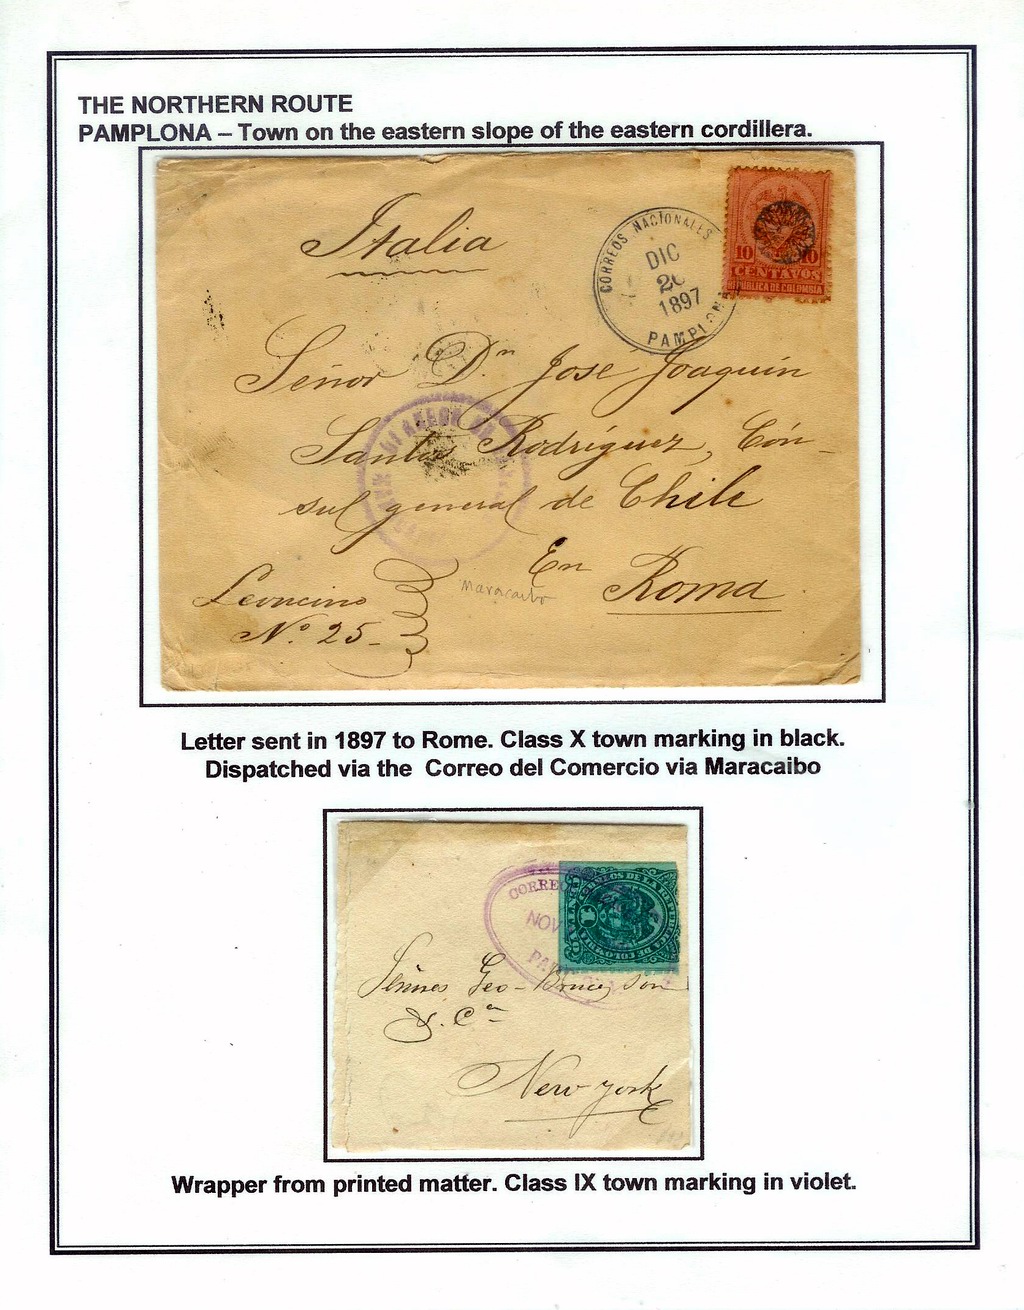 THE NORTHERN ROUTE
PAMPLONA – Town on the eastern slope of the eastern cordillera.
Italia
CORREOS NACIONALES
DIC
1897
PAMPLONA
10 10
CENTAVOS
REPUBLICA DE COLOMBIA
Señor Dn Jose Joaquin
Santos Rodríguez, Cón-
sul general de Chile
En
Roma
Leoncino
No. 25-
Maracaibo
Letter sent in 1897 to Rome. Class X town marking in black.
Dispatched via the Correo del Comercio via Maracaibo
CORREO
NOV
CORREOS DE LA REPUBLICA DE COLOMBIA
1
Geo-
& Ca
New-york
Wrapper from printed matter. Class IX town marking in violet.